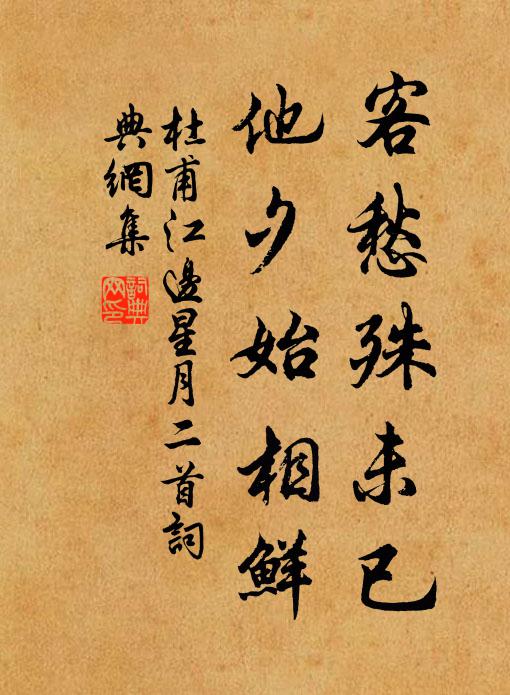 客愁殊未已
他夕始相鮮
杜甫江邊星月二首詞
典網集
詞典
网印